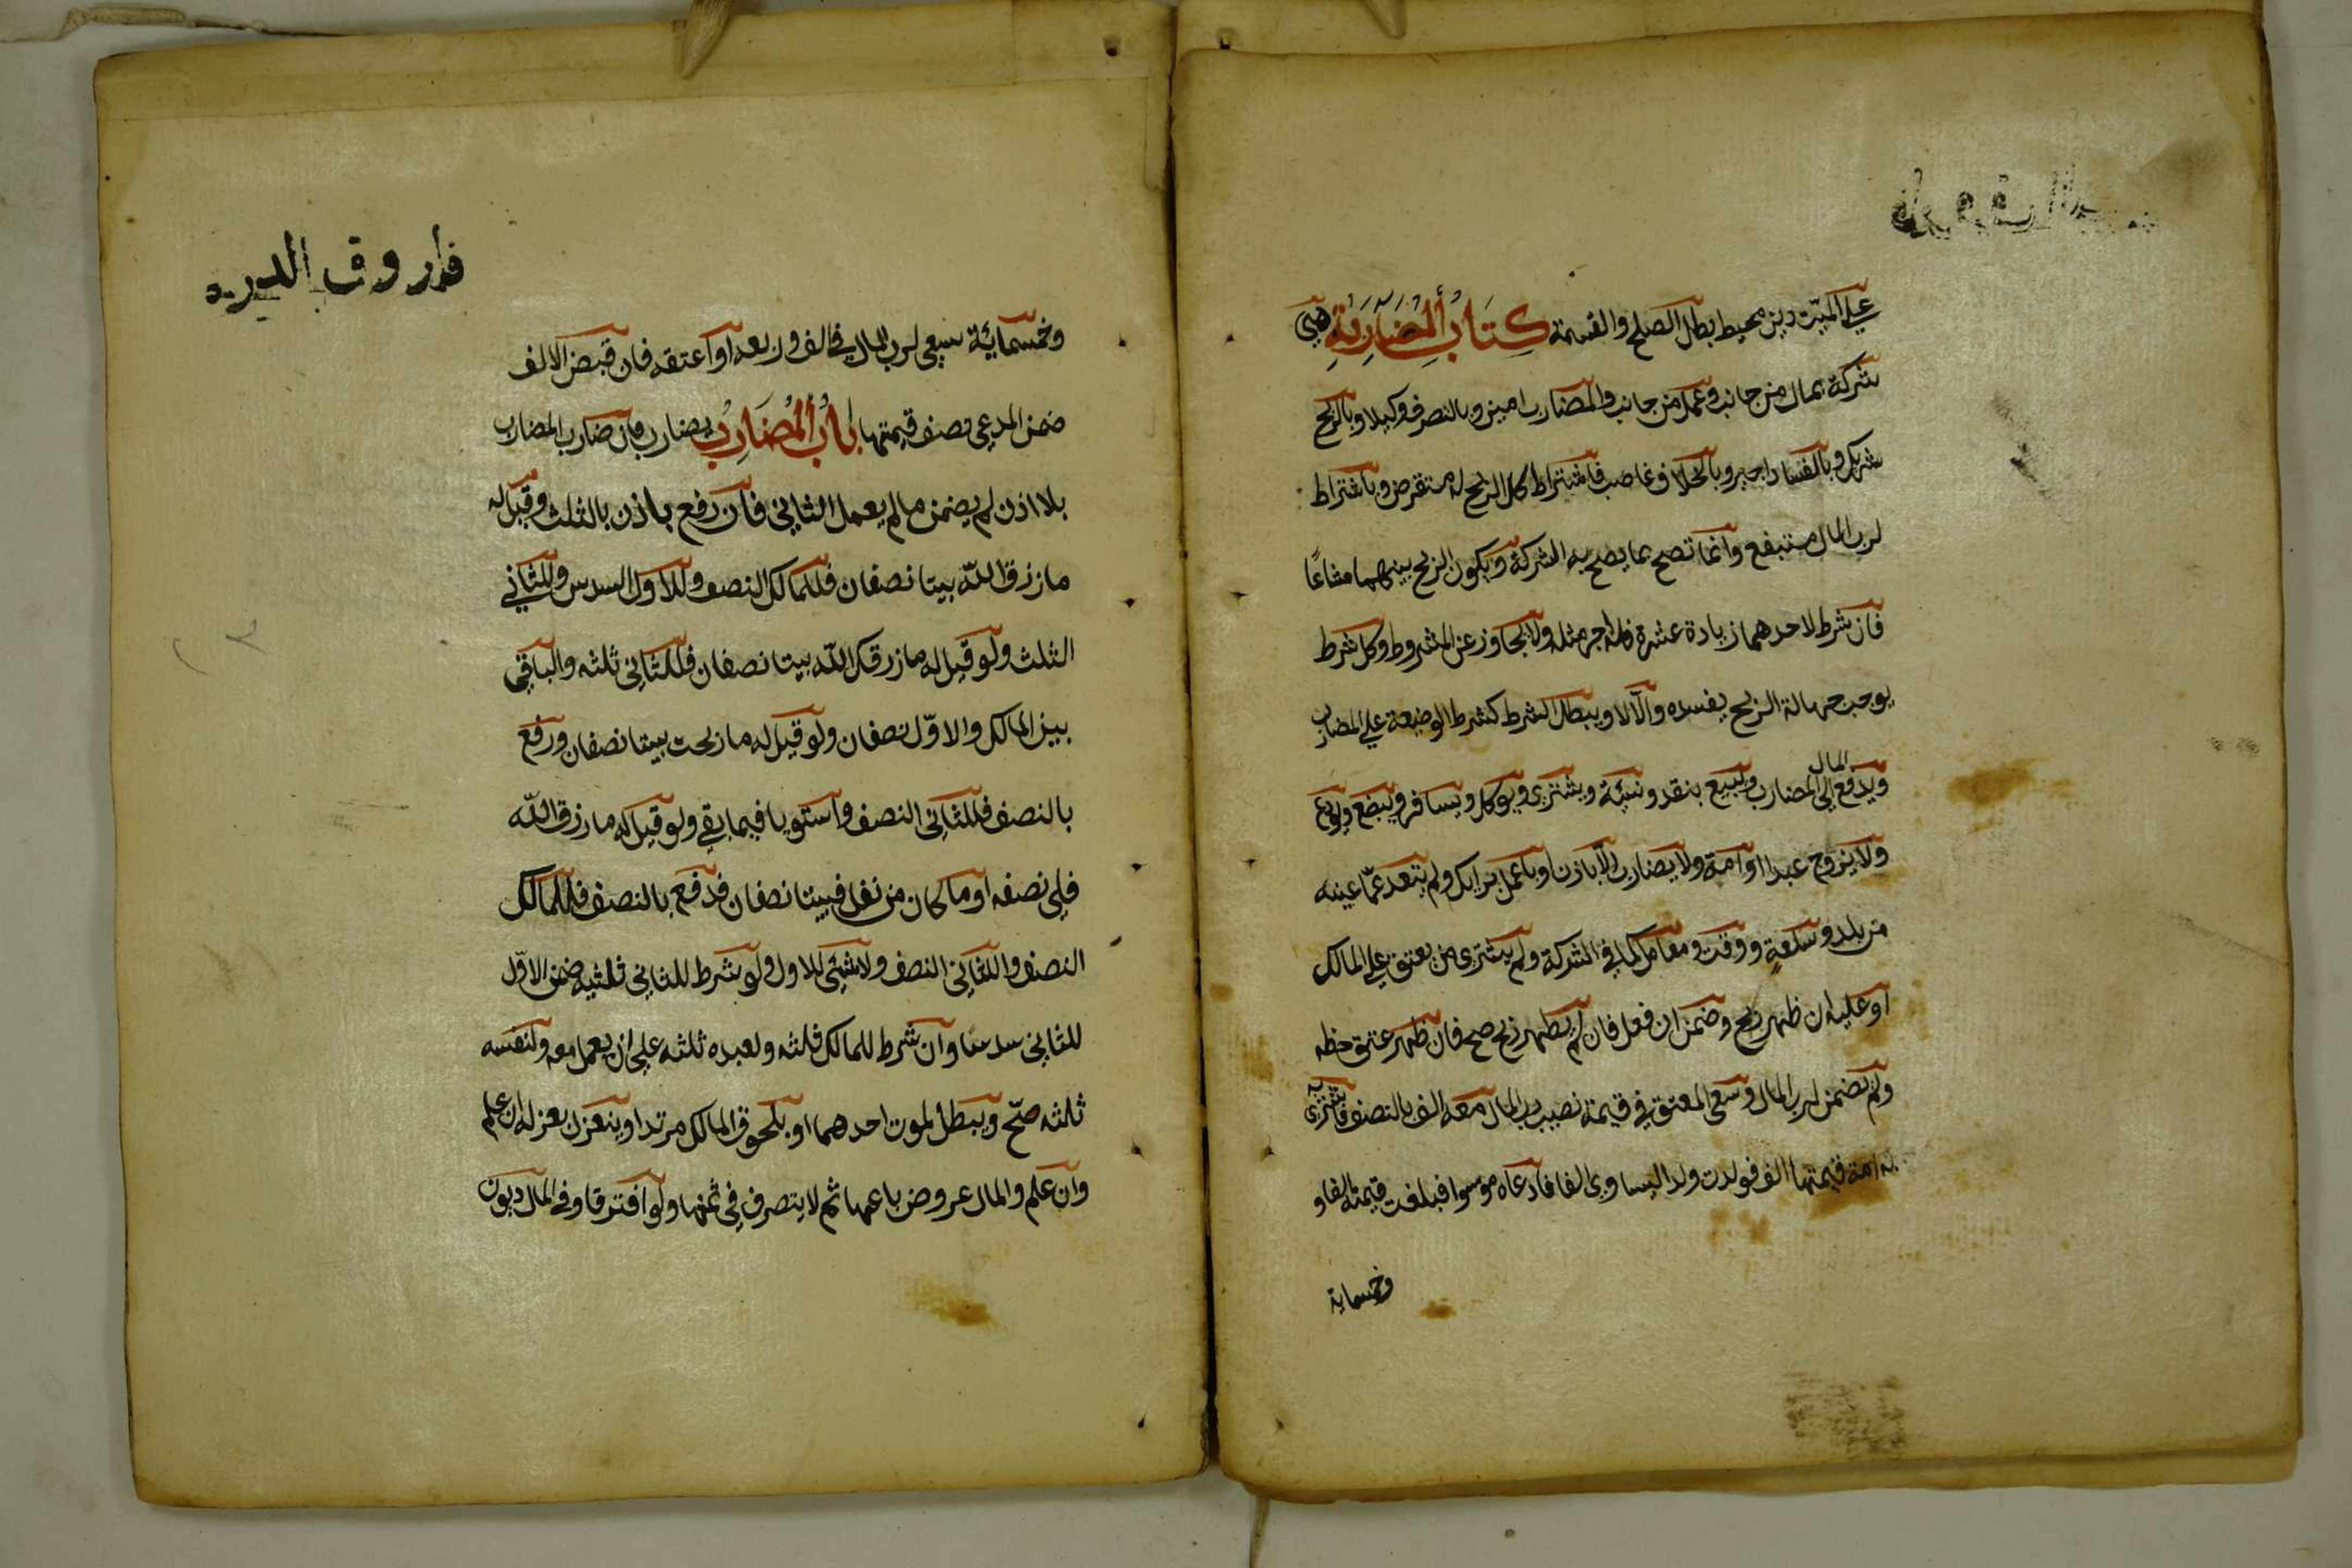 على الميت دين محيط بطل الصلح والقسمة كِتَابُ المُضَارَبَةِ هي
شركة بمال من جانب وعمل من جانب والمضارب امين وبالتصرف وكيل وبالربح
شريك وبالفساد اجير وبالخلاف غاصب فاشتراط كل الربح له مستقرض وباشتراط
لرب المال مستبضع وانما تصح بما يصح به الشركة ويكون الربح بينهما مشاعًا
فان شرط لاحدهما زيادة عشرة فله اجر مثله ولا يجاوز عن المشروط وكل شرط
يوجب جهالة الربح يفسده والّا لا ويبطل الشرط كشرط الوضيعة على المضارب
المال
ويدفع الى المضارب ويبيع بنقد ونسيئة ويشترى ويوكل ويسافر ويبضع ويودع
ولا يزوج عبدا او امة ولا يضارب الّا باذن او باعمل برايك ولم يتعد عمّا عينه
من بلد وسلعةٍ ووقت ومعامل كما في الشركة ولم يشترى من يعتق على المالك
او عليه ان ظهر ربح وضمن ان فعل فان لم يظهر ربح صح فان ظهر عتق حظه
ولم يضمن لرب المال وسعى المعتق في قيمة نصيب رب المال معه الف بالنصف فاشترى به
به امة قيمتها الف فولدت ولدا يساوى الفا فادعاه موسرا فبلغت قيمته الفا و
وخمسماية
فاروق الدير
وخمسمايئة سعى لرب المال في الف وربعه او اعتقه فان قبض الالف
ضمن المدعى نصف قيمتها بابُ المُضَارِبُ يضارب فان ضارب المضارب
بلا اذن لم يضمن ما لم يعمل الثاني فان دفع باذن بالثلث وقيل له
ما رزق اللّه بيننا نصفان فللمالك النصف وللاول السدس وللثاني
الثلث ولو قيل له ما رزقك اللّه بيننا نصفان فللثاني ثلثه والباقي
بين المالك والاوّل نصفان ولو قيل له ما ربحت بيننا نصفان ودفع
بالنصف فللثاني النصف واستويا فيما بقي ولو قيل له ما رزق اللّه
فلي نصفه او ما كان من فضل فبيننا نصفان فدفع بالنصف فللمالك
النصف وللثاني النصف ولا شيئ للاول ولو شرط للثاني ثلثيه ضمن الاوّل
للثاني سدسا وان شرط للمالك ثلثه ولعبده ثلثه على ان يعمل معه ولنفسه
ثلثه صحّ ويبطل لموت احدهما او بلحوق المالك مرتدا وينعزل بعزله ان علم
وان علم والمال عروض باعها ثم لا يتصرف في ثمنها ولو افترقا وفي المال ديون